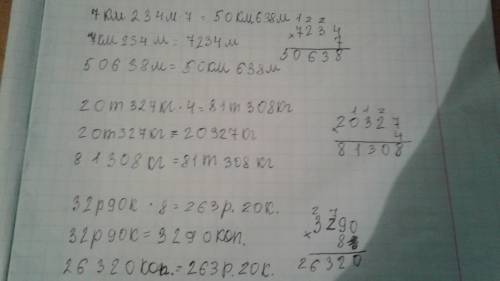 7км 234м · 7 = 50км 638м
7км 234м = 7234м
50638м = 50км 638м
1 2 2
× 7234
7
50638
20т 327кг · 4 = 81т 308кг
20т 327кг = 20327кг
81308кг = 81т 308кг
1 1 2
× 20327
4
81308
32р 90к · 8 = 263р. 20к.
32р 90к = 3290коп.
26320коп. = 263р. 20к.
2 7
× 3290
8
26320